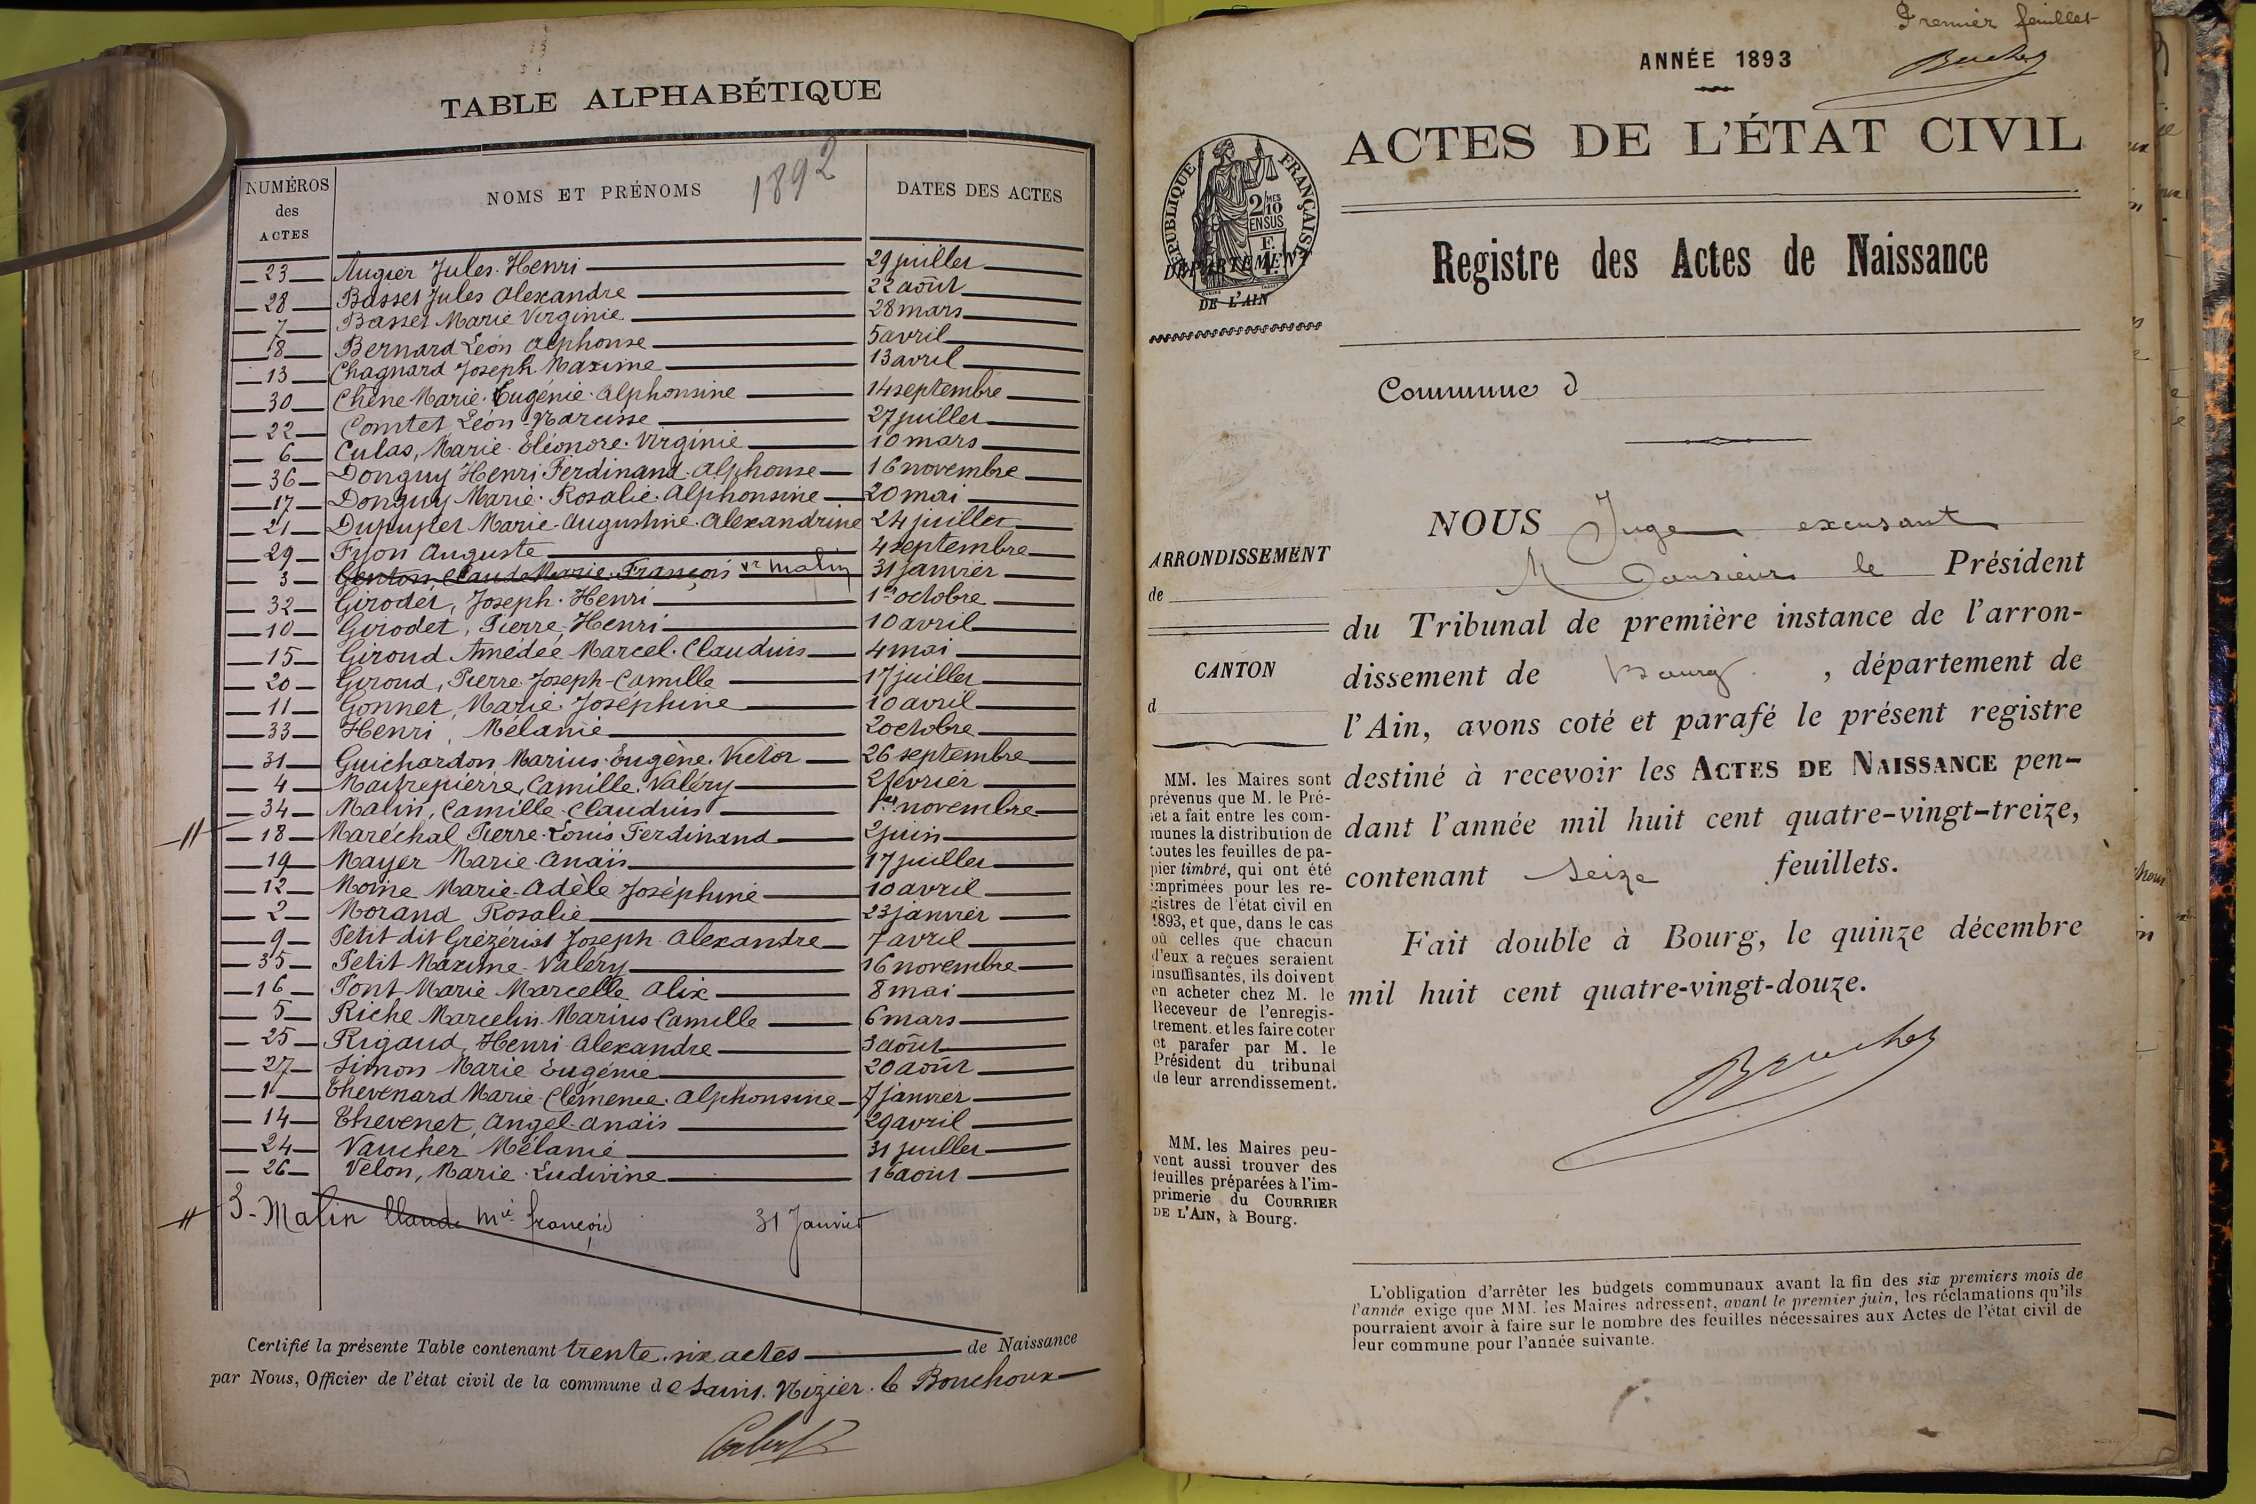 TABLE ALPHABÉTIQUE
1892
NUMÉROS des ACTES NOMS ET PRÉNOMS DATES DES ACTES
23 Augier Jules-Henri 29 juillet
28 Basset Jules Alexandre 22 août
7 Basset Marie Virginie 28 mars
8 Bernard Léon Alphonse 5 avril
13 Chagnard Joseph Maxime 13 avril
30 Chêne Marie-Eugénie-Alphonsine 14 septembre
22 Comtet Léon Narcisse 27 juillet
6 Culas, Marie-Eléonore-Virginie 10 mars
36 Donguy Henri Ferdinand-Alphonse 16 novembre
17 Donguy Marie-Rosalie-Alphonsine 20 mai
21 Dupuplet Marie-Augustine-Alexandrine 24 juillet
29 Fyon Auguste 4 septembre
3 Genton Claude Marie-François vr Malin 31 janvier
32 Girodet, Joseph-Henri 1er octobre
10 Girodet, Pierre-Henri 10 avril
15 Giroud Amédée Marcel-Claudius 4 mai
20 Giroud, Pierre-Joseph-Camille 17 juillet
11 Gonnet, Marie-Joséphine 10 avril
33 Henri, Mélanie 2 octobre
31 Guichardon Marius-Eugène-Victor 26 septembre
4 Maitrepierre, Camille-Valéry 2 février
34 Malin, Camille-Claudius 1er novembre
18 Maréchal Pierre-Louis Ferdinand 2 juin
19 Mayer Marie-Anaïs 17 juillet
12 Moine Marie-Adèle Joséphine 10 avril
2 Morand Rosalie 23 janvier
9 Petit dit Grézériat Joseph-Alexandre 7 avril
35 Petit Maxime-Valéry 16 novembre
16 Pont Marie Marcelle Alix 8 mai
5 Riche Marcelin-Marius Camille 6 mars
25 Rigaud, Henri-Alexandre 3 août
27 Simon Marie Eugénie 20 août
1 Thevenard Marie-Clémence-Alphonsine 7 janvier
14 Thevenet, Angel-Anaïs 29 avril
24 Vaucher Mélanie 31 juillet
26 Velon, Marie-Ludivine 16 août
3- Malin Claude Mie françois 31 Janvier
Certifié la présente Table contenant trente-six actes de Naissance
par Nous, Officier de l'état civil de la commune de Saint-Nizier-le Bouchoux
Premier feuillet
ANNÉE 1893
ACTES DE L'ÉTAT CIVIL
RÉPUBLIQUE FRANÇAISE
2/10MES
EN SUS
DÉPARTEMENT
DE L'AIN
Registre des Actes de Naissance
Commune d
ARRONDISSEMENT
de
CANTON
d
MM. les Maires sont
prévenus que M. le Pré-
fet a fait entre les com-
munes la distribution de
toutes les feuilles de pa-
pier timbré, qui ont été
imprimées pour les re-
gistres de l'état civil en
1893, et que, dans le cas
où celles que chacun
d'eux a reçues seraient
insuffisantes, ils doivent
en acheter chez M. le
Receveur de l'enregis-
trement, et les faire coter
et parafer par M. le
Président du tribunal
de leur arrondissement.
MM. les Maires peu-
vent aussi trouver des
feuilles préparées à l'im-
primerie du COURRIER
DE L'AIN, à Bourg.
NOUS Juge excusant
Monsieur le Président
du Tribunal de première instance de l'arron-
dissement de Bourg, département de
l'Ain, avons coté et parafé le présent registre
destiné à recevoir les ACTES DE NAISSANCE pen-
dant l'année mil huit cent quatre-vingt-treize,
contenant Seize feuillets.
Fait double à Bourg, le quinze décembre
mil huit cent quatre-vingt-douze.
L'obligation d'arrêter les budgets communaux avant la fin des six premiers mois de
l'année exige que MM. les Maires adressent, avant le premier juin, les réclamations qu'ils
pourraient avoir à faire sur le nombre des feuilles nécessaires aux Actes de l'état civil de
leur commune pour l'année suivante.